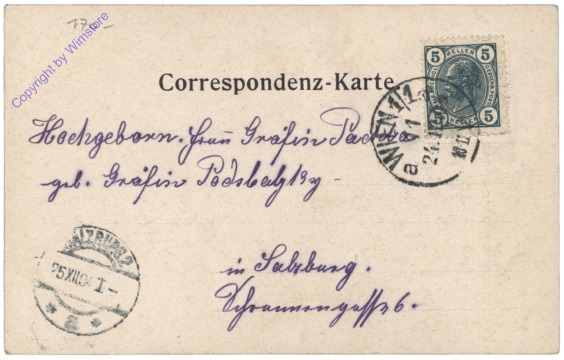 17.-
Copyright by Wimstore
5 HELLER 5
5 HELLER 5
Correspondenz-Karte
WIEN 1/1
a
Hochgeborn. Frau Gräfin
geb. Gräfin Podstatzky
SALZBURG
25 XII 04 I
* 2 *
in Salzburg.
Schrannengasse 6.